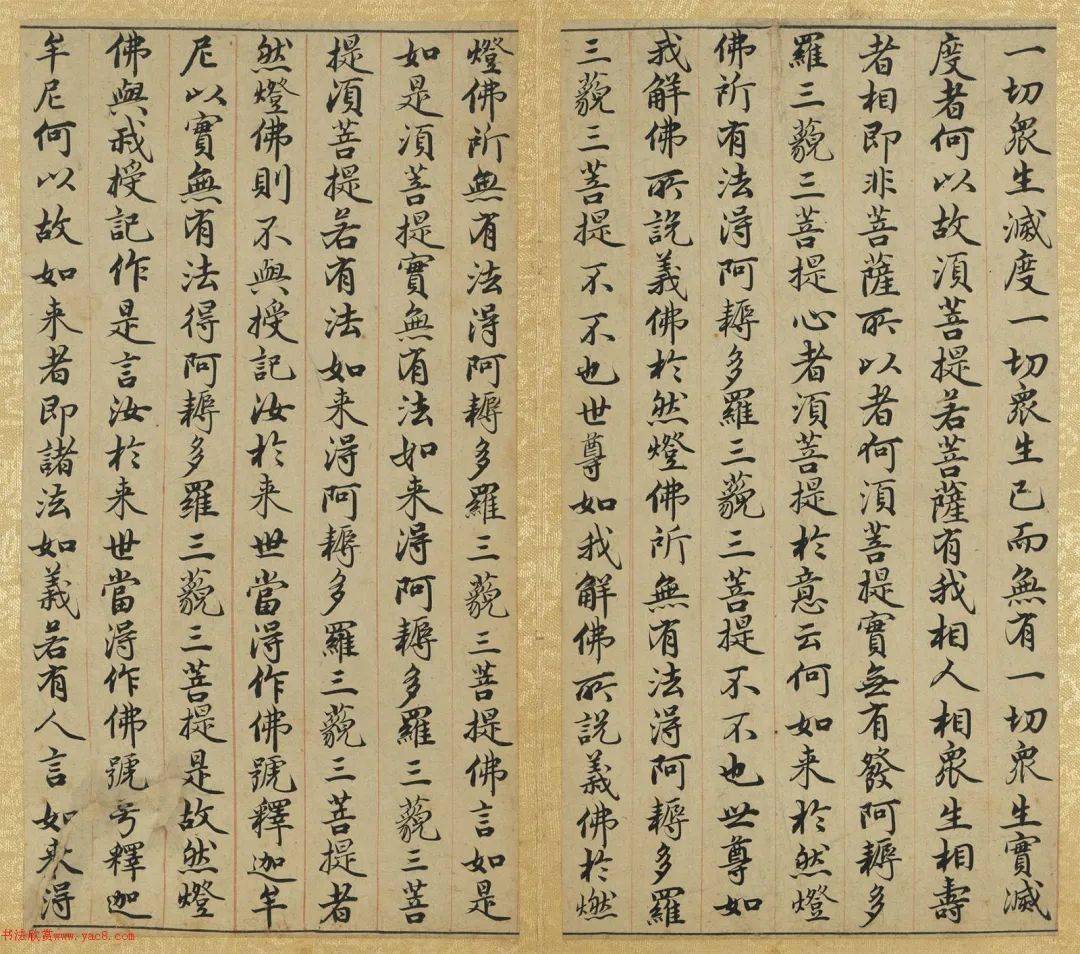 一切眾生滅度一切眾生已而無有一切眾生實滅
度者何以故須菩提若菩薩有我相人相眾生相壽
者相即非菩薩所以者何須菩提實無有發阿耨多
羅三藐三菩提心者須菩提於意云何如来於然燈
佛所有法得阿耨多羅三藐三菩提不不也世尊如
我解佛所說義佛於然燈佛所無有法得阿耨多羅
三藐三菩提不不也世尊如我解佛所說義佛於燃
燈佛所無有法得阿耨多羅三藐三菩提佛言如是
如是須菩提實無有法如来得阿耨多羅三藐三菩
提須菩提若有法如来得阿耨多羅三藐三菩提者
然燈佛則不與授記汝於来世當得作佛號釋迦牟
尼以實無有法得阿耨多羅三藐三菩提是故然燈
佛與我授記作是言汝於来世當得作佛號号釋迦
牟尼何以故如来者即諸法如義若有人言如来得
书法欣赏www.yac8.com